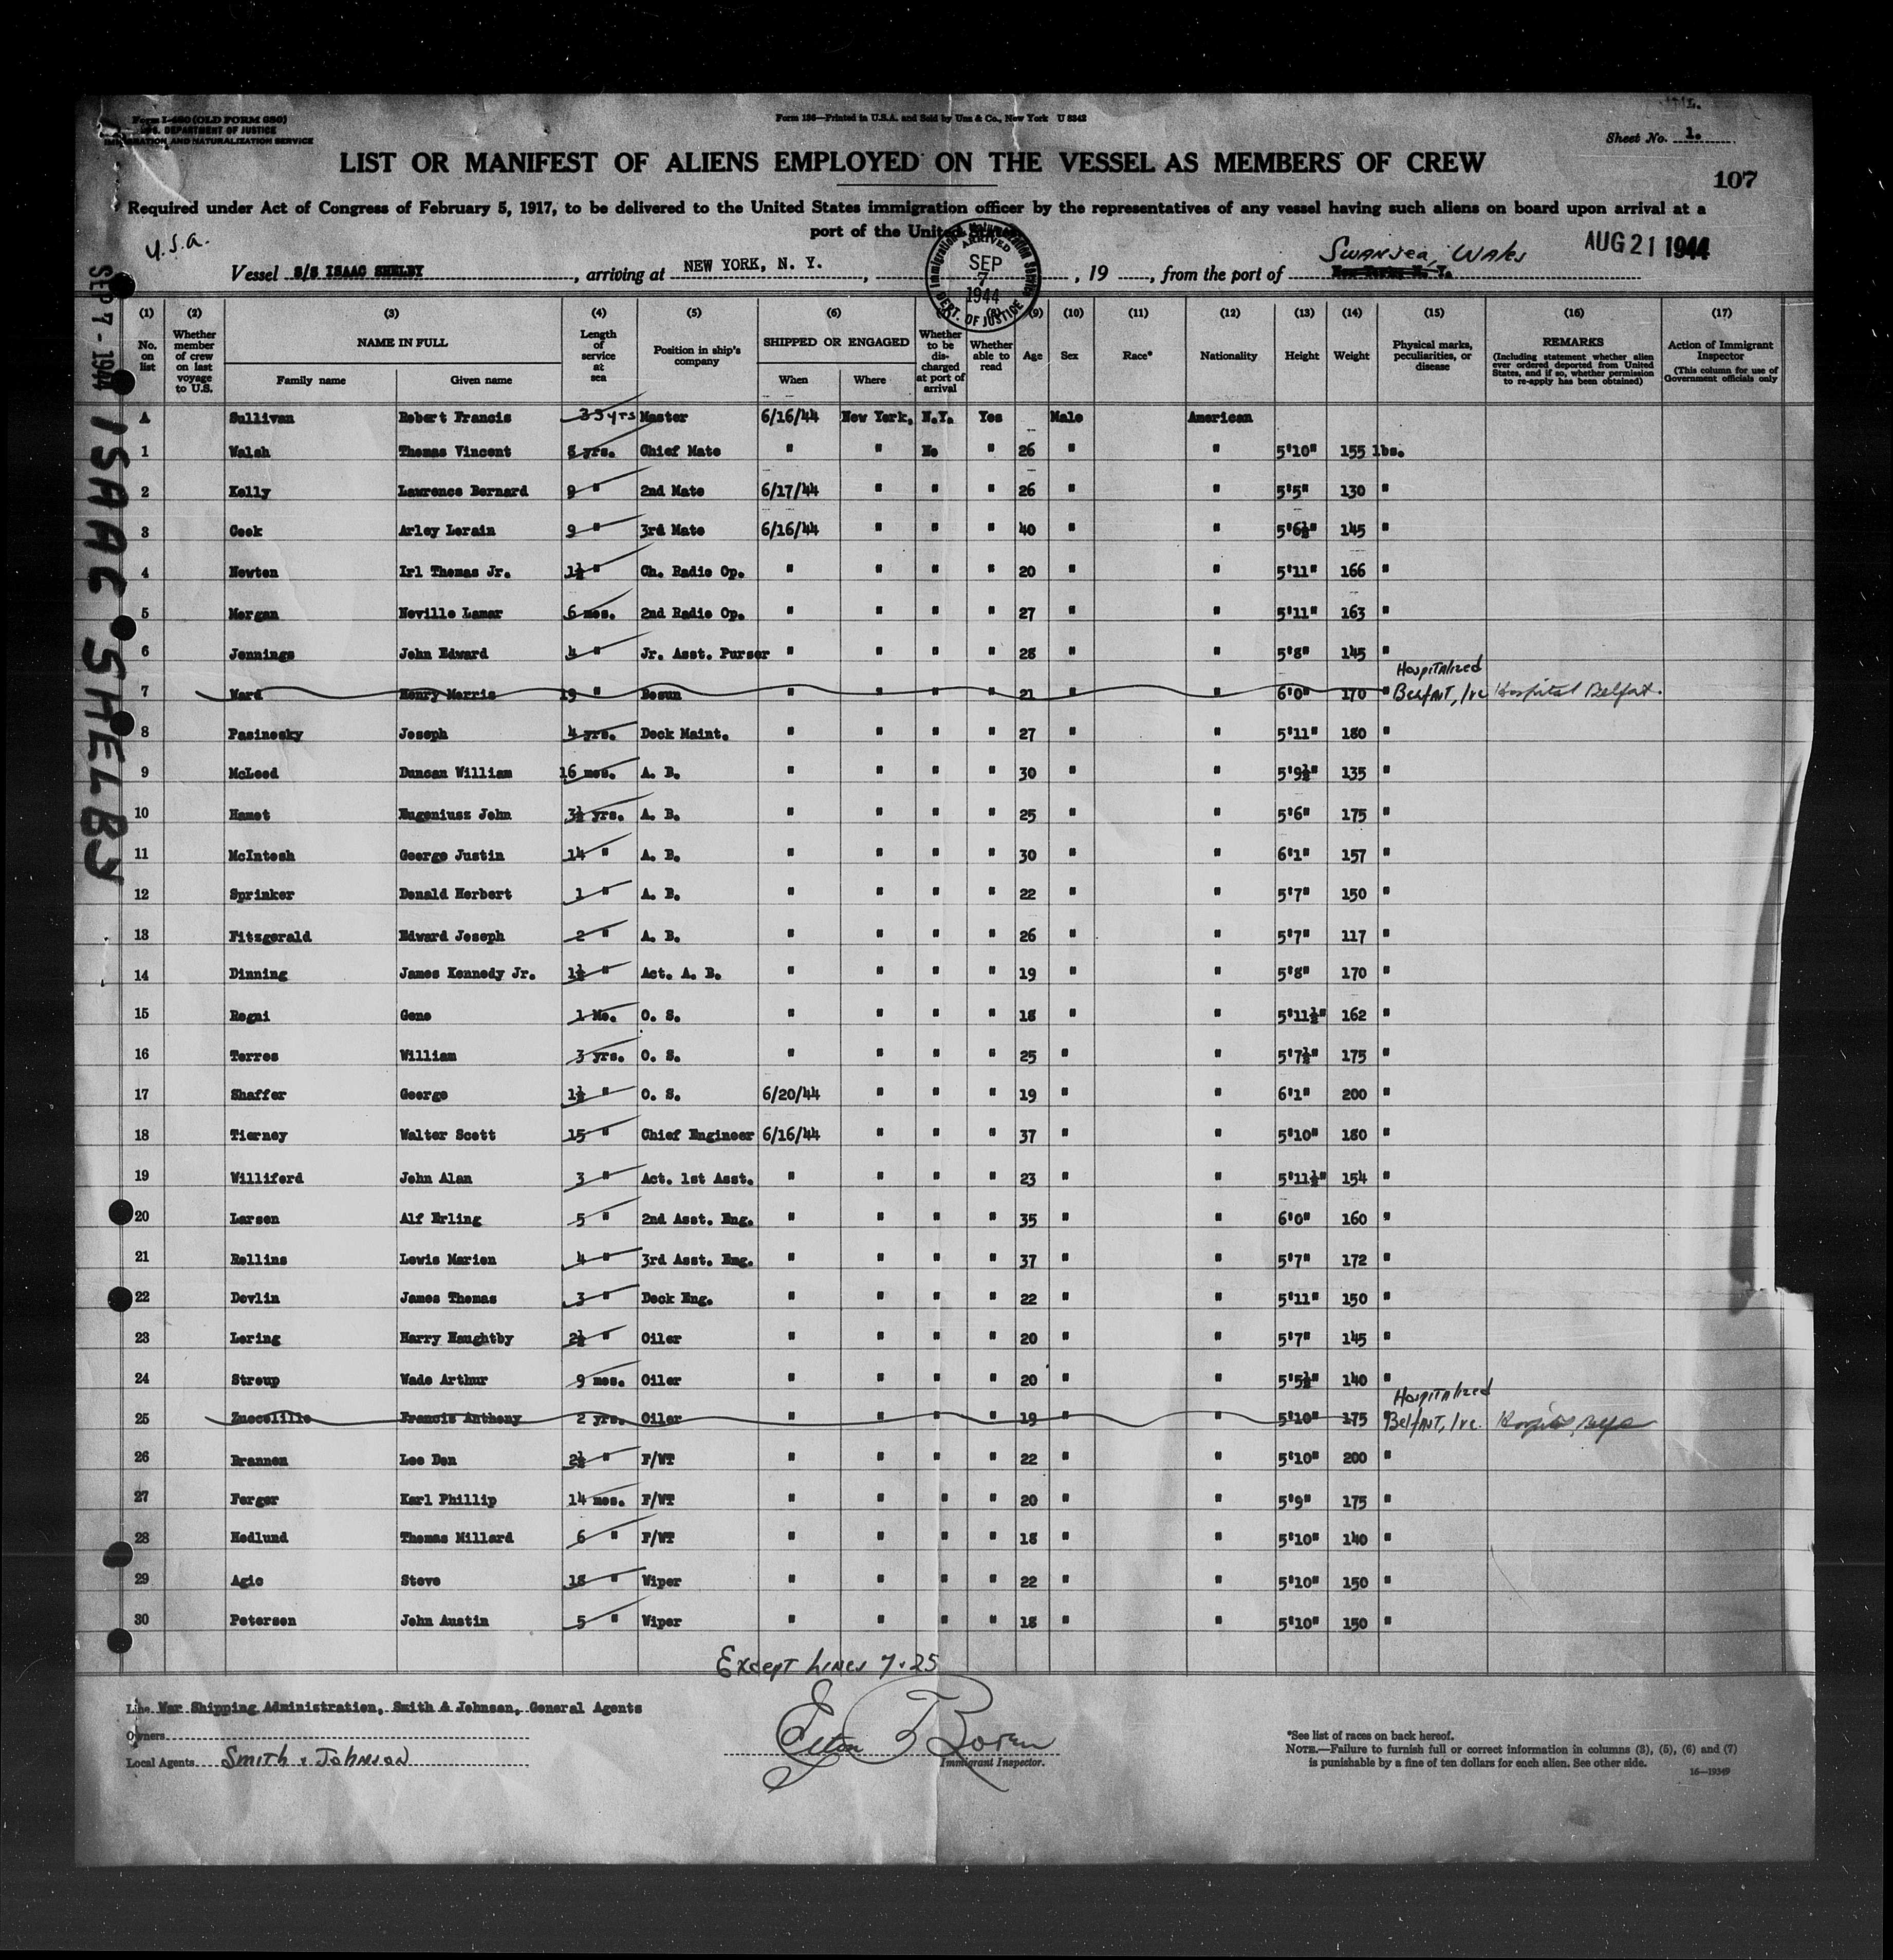 Form I-480 (OLD FORM 680)
U.S. DEPARTMENT OF JUSTICE
IMMIGRATION AND NATURALIZATION SERVICE
Form 136—Printed in U.S.A. and Sold by Unz & Co., New York U 8342
Sheet No. 1.
LIST OR MANIFEST OF ALIENS EMPLOYED ON THE VESSEL AS MEMBERS OF CREW
107
Required under Act of Congress of February 5, 1917, to be delivered to the United States immigration officer by the representatives of any vessel having such aliens on board upon arrival at a
port of the United States
U.S.A.
Vessel S/S ISAAC SHELBY, arriving at NEW YORK, N. Y., 19, from the port of Swansea, Wales AUG 21 1944
New York, N. Y.
Immigration & Naturalization Service ARRIVED SEP 7 1944 DEPT. OF JUSTICE
SEP 7 - 1944 ISAAC SHELBY
(1) No. on list
(2) Whether member of crew on last voyage to U.S.
(3) NAME IN FULL Family name Given name
(4) Length of service at sea
(5) Position in ship's company
(6) SHIPPED OR ENGAGED When Where
Whether to be discharged at port of arrival
(8) Whether able to read
(9) Age
(10) Sex
(11) Race*
(12) Nationality
(13) Height
(14) Weight
(15) Physical marks, peculiarities, or disease
(16) REMARKS (Including statement whether alien ever ordered deported from United States, and if so, whether permission to re-apply has been obtained)
(17) Action of Immigrant Inspector (This column for use of Government officials only
A Sullivan Robert Francis 35 yrs Master 6/16/44 New York, N.Y. Yes Male American
1 Walsh Thomas Vincent 8 yrs. Chief Mate " " No " 26 " " 5'10" 155 lbs.
2 Kelly Lawrence Bernard 9 " 2nd Mate 6/17/44 " " " 26 " " 5'5" 130 "
3 Cook Arley Lorain 9 " 3rd Mate 6/16/44 " " " 40 " " 5'6½" 145 "
4 Newton Irl Thomas Jr. 1½ " Ch. Radio Op. " " " " 20 " " 5'11" 166 "
5 Morgan Neville Lamar 6 mos. 2nd Radio Op. " " " " 27 " " 5'11" 163 "
6 Jennings John Edward 4 " Jr. Asst. Purser " " " " 28 " " 5'8" 145 "
7 Ward Henry Morris 19 " Bosun " " " " 21 " " 6'0" 170 " Hospitalized Belfast, Ire Hospital Belfast.
8 Pasinosky Joseph 4 yrs. Deck Maint. " " " " 27 " " 5'11" 180 "
9 McLeod Duncan William 16 mos. A. B. " " " " 30 " " 5'9½" 135 "
10 Hamot Eugeniusz John 3½ yrs. A. B. " " " " 25 " " 5'6" 175 "
11 McIntosh George Justin 14 " A. B. " " " " 30 " " 6'1" 157 "
12 Sprinker Donald Herbert 1 " A. B. " " " " 22 " " 5'7" 150 "
13 Fitzgerald Edward Joseph 2 " A. B. " " " " 26 " " 5'7" 117 "
14 Dinning James Kennedy Jr. 1½ " Act. A. B. " " " " 19 " " 5'8" 170 "
15 Regni Gene 1 Mo. O. S. " " " " 18 " " 5'11½" 162 "
16 Torres William 3 yrs. O. S. " " " " 25 " " 5'7½" 175 "
17 Shaffer George 1½ " O. S. 6/20/44 " " " 19 " " 6'1" 200 "
18 Tierney Walter Scott 15 " Chief Engineer 6/16/44 " " " 37 " " 5'10" 180 "
19 Williford John Alan 3 " Act. 1st Asst. " " " " 23 " " 5'11½" 154 "
20 Larsen Alf Erling 5 " 2nd Asst. Eng. " " " " 35 " " 6'0" 160 "
21 Rollins Lewis Marion 4 " 3rd Asst. Eng. " " " " 37 " " 5'7" 172 "
22 Devlin James Thomas 3 " Deck Eng. " " " " 22 " " 5'11" 150 "
23 Loring Harry Naughtby 2½ " Oiler " " " " 20 " " 5'7" 145 "
24 Stroup Wade Arthur 9 mos. Oiler " " " " 20 " " 5'5½" 140 "
25 Zuccolillo Francis Anthony 2 yrs. Oiler " " " " 19 " " 5'10" 175 Hospitalized Belfast, Ire.
26 Brannon Lee Don 2½ " F/WT " " " " 22 " " 5'10" 200 "
27 Ferger Karl Phillip 14 mos. F/WT " " " " 20 " " 5'9" 175 "
28 Hedlund Thomas Millard 6 " F/WT " " " " 18 " " 5'10" 140 "
29 Agic Steve 18 " Wiper " " " " 22 " " 5'10" 150 "
30 Petersen John Austin 5 " Wiper " " " " 18 " " 5'10" 150 "
Except Lines 7.25
Line War Shipping Administration, Smith & Johnson, General Agents
Owners
Local Agents Smith & Johnson
Immigrant Inspector.
*See list of races on back hereof.
NOTE.—Failure to furnish full or correct information in columns (3), (5), (6) and (7)
is punishable by a fine of ten dollars for each alien. See other side.
16—19349